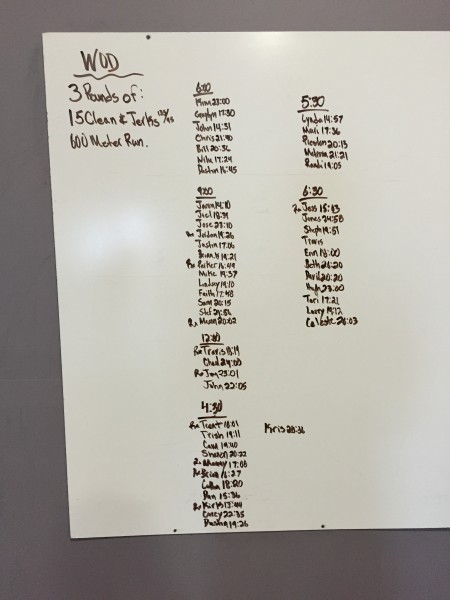 WOD
3 Rounds of:
15 Clean & Jerks 135/95
600 Meter Run.
6:00
23:00
17:30
John 14:31
Chris 21:40
Bill 20:36
Mike 17:24
Dustin 16:45
9:00
Jason 14:10
Joel 18:39
Jose 23:10
Rx Jordan 19:26
Justin 17:06
Brian H 19:21
Rx Parker 16:49
Mike 19:37
Lindsay 19:10
Faith 17:48
Sam 20:15
Stef 24:56
Rx 20:02
12:00
Rx Travis 18:19
Chad 24:00
Rx Jay 23:01
John 22:05
4:30
Rx Trent 18:01
Trish 19:11
19:40
Shannon 20:22
Rx Manny 17:08
Rx Brian 16:27
18:20
15:36
Rx Kirk 13:44
Corey 22:35
Dustin 19:26
Kris 28:36
5:30
Lynda 14:57
Mari 17:36
20:13
Melissa 21:21
Randi 19:05
6:30
Rx Jess 15:43
James 24:58
Steph 19:51
Travis
Erin 18:00
Beth 26:20
David 20:20
Hugh 23:00
Tori 17:21
Larry 19:12
Celeste 26:03